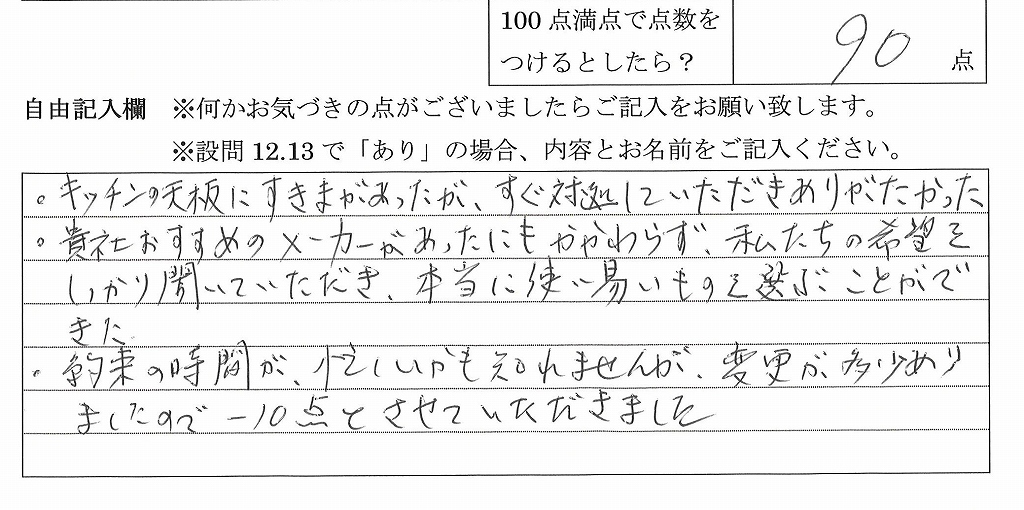 100点満点で点数を
つけるとしたら？
90点
自由記入欄 ※何かお気づきの点がございましたらご記入をお願い致します。
※設問12.13で「あり」の場合、内容とお名前をご記入ください。
。キッチンの天板にすきまがあったが、すぐ対処していただきありがたかった
。貴社おすすめのメーカーがあったにもかかわらず、私たちの希望を
しっかり聞いていただき、本当に使い易いものを選ぶことがで
きた
。約束の時間が、忙しいかも知れませんが、変更が多少あり
ましたので −10点とさせていただきました